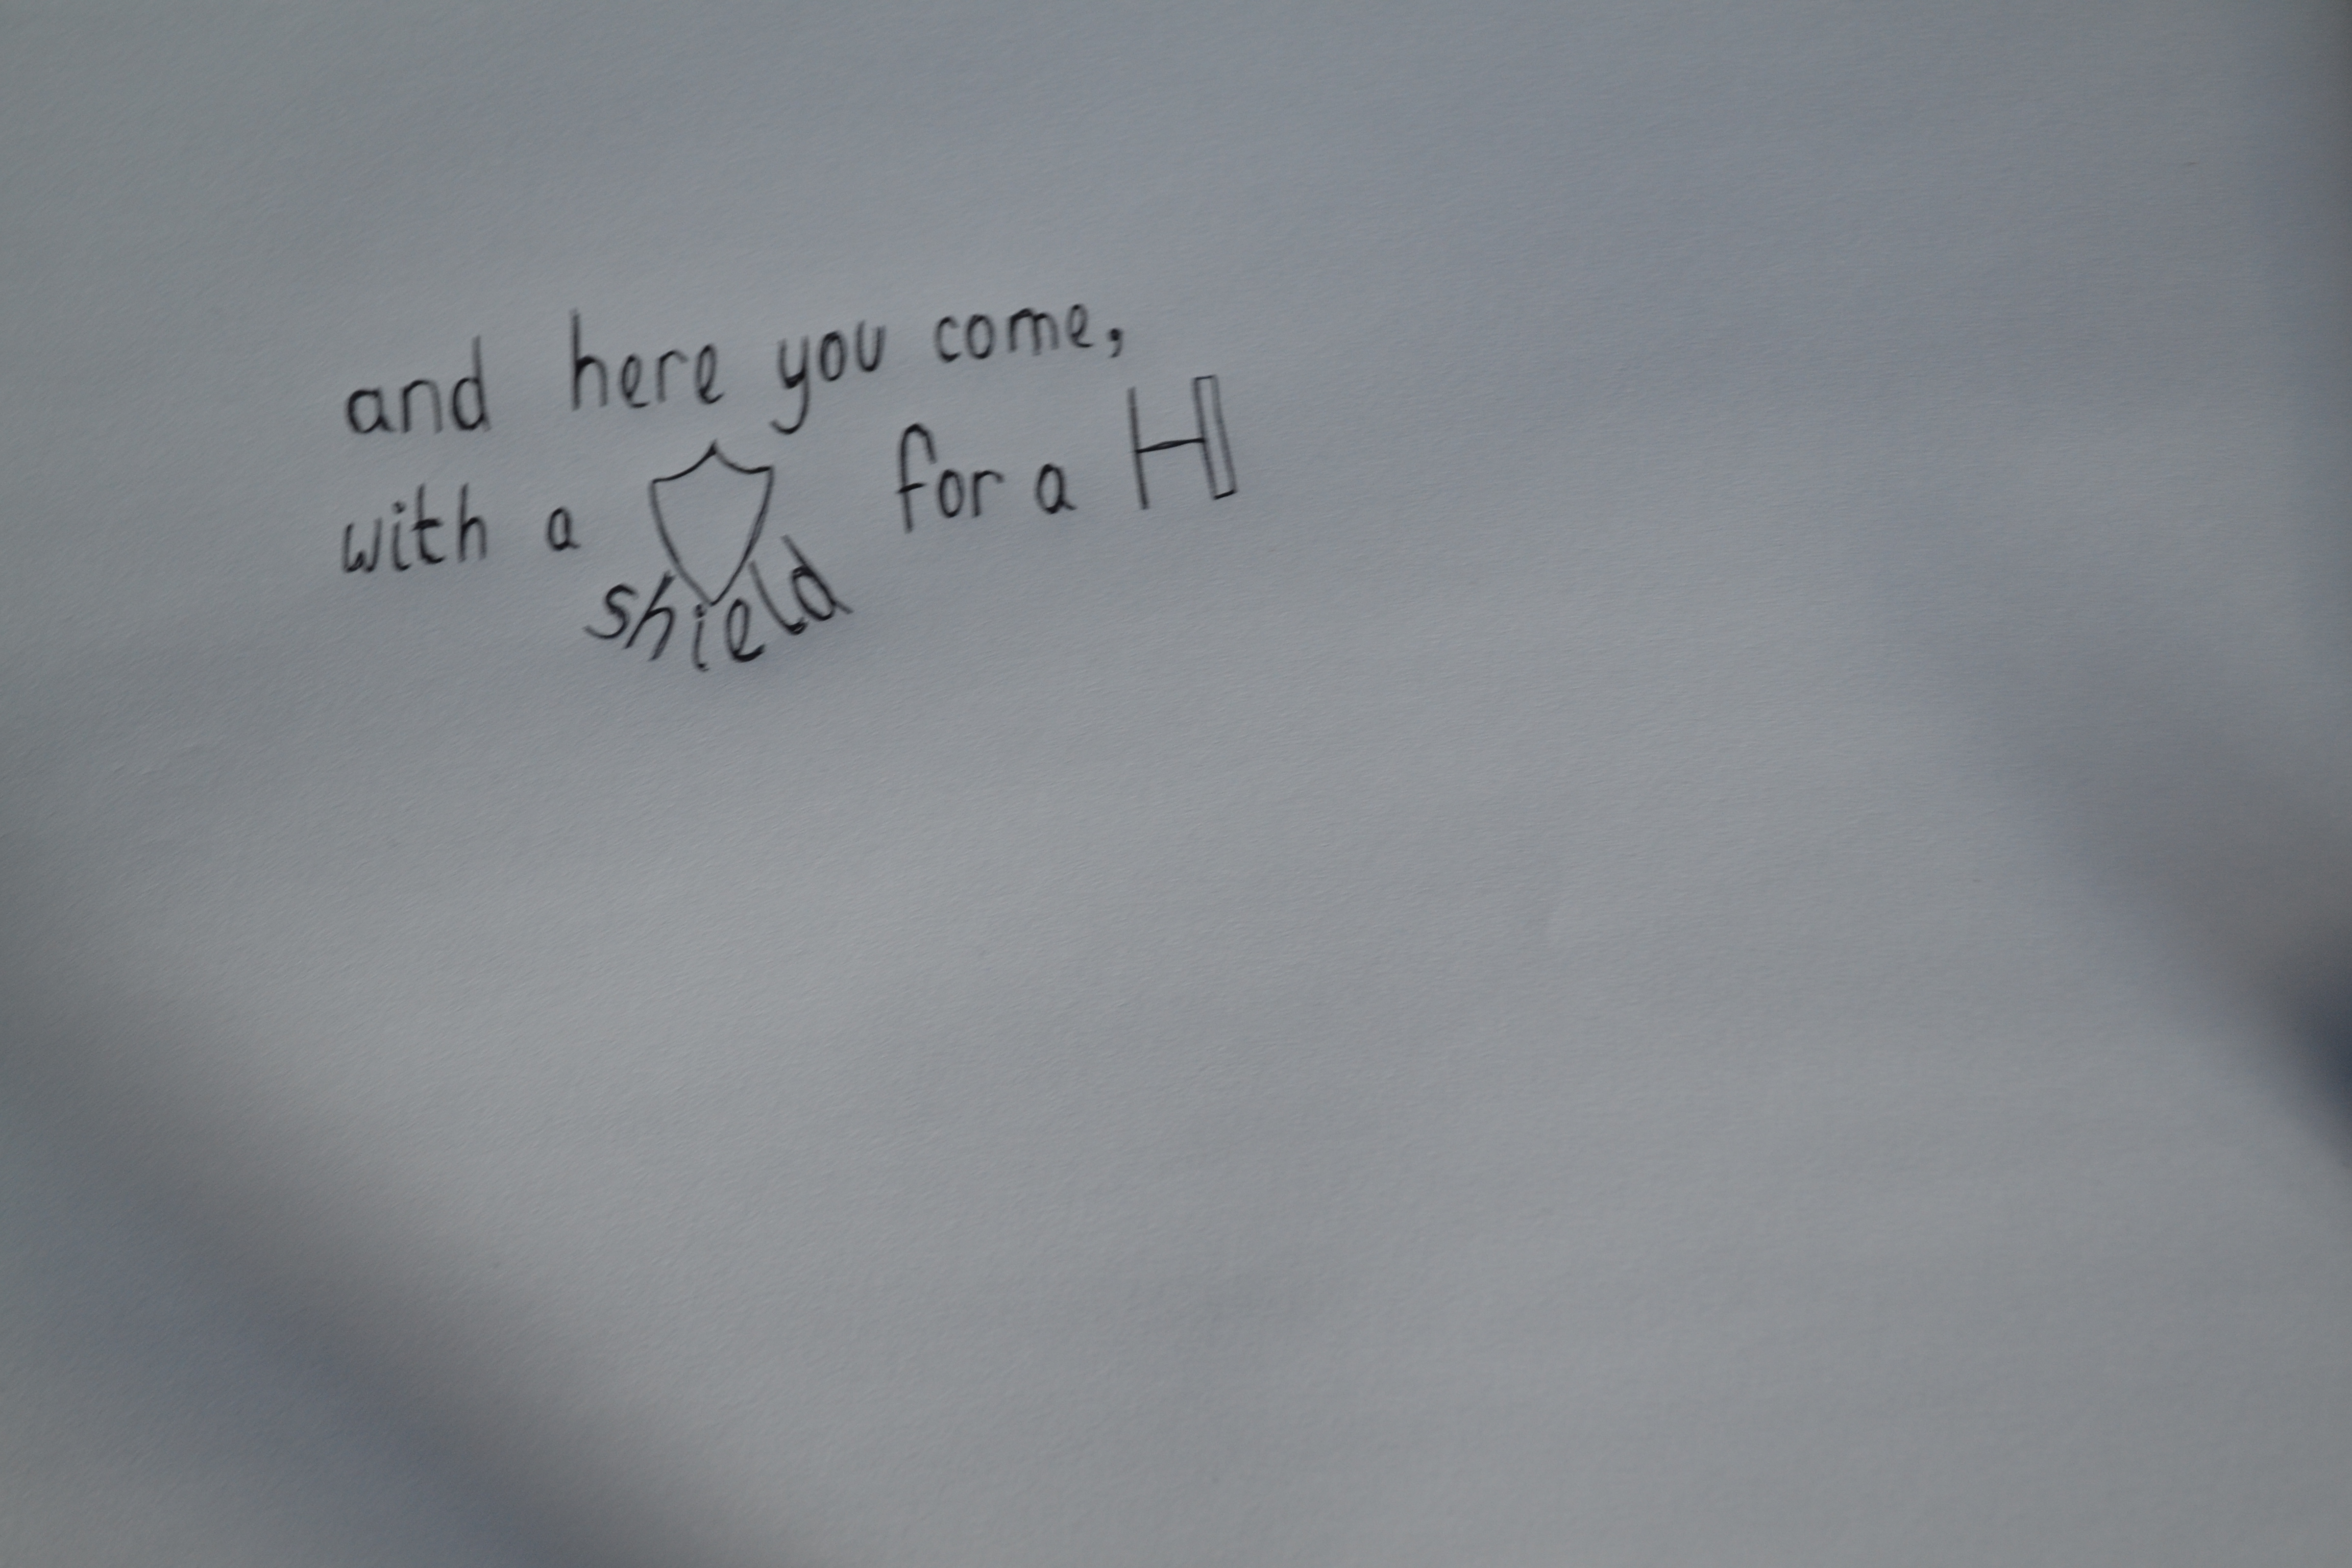 and here you come,
with a shield for a H